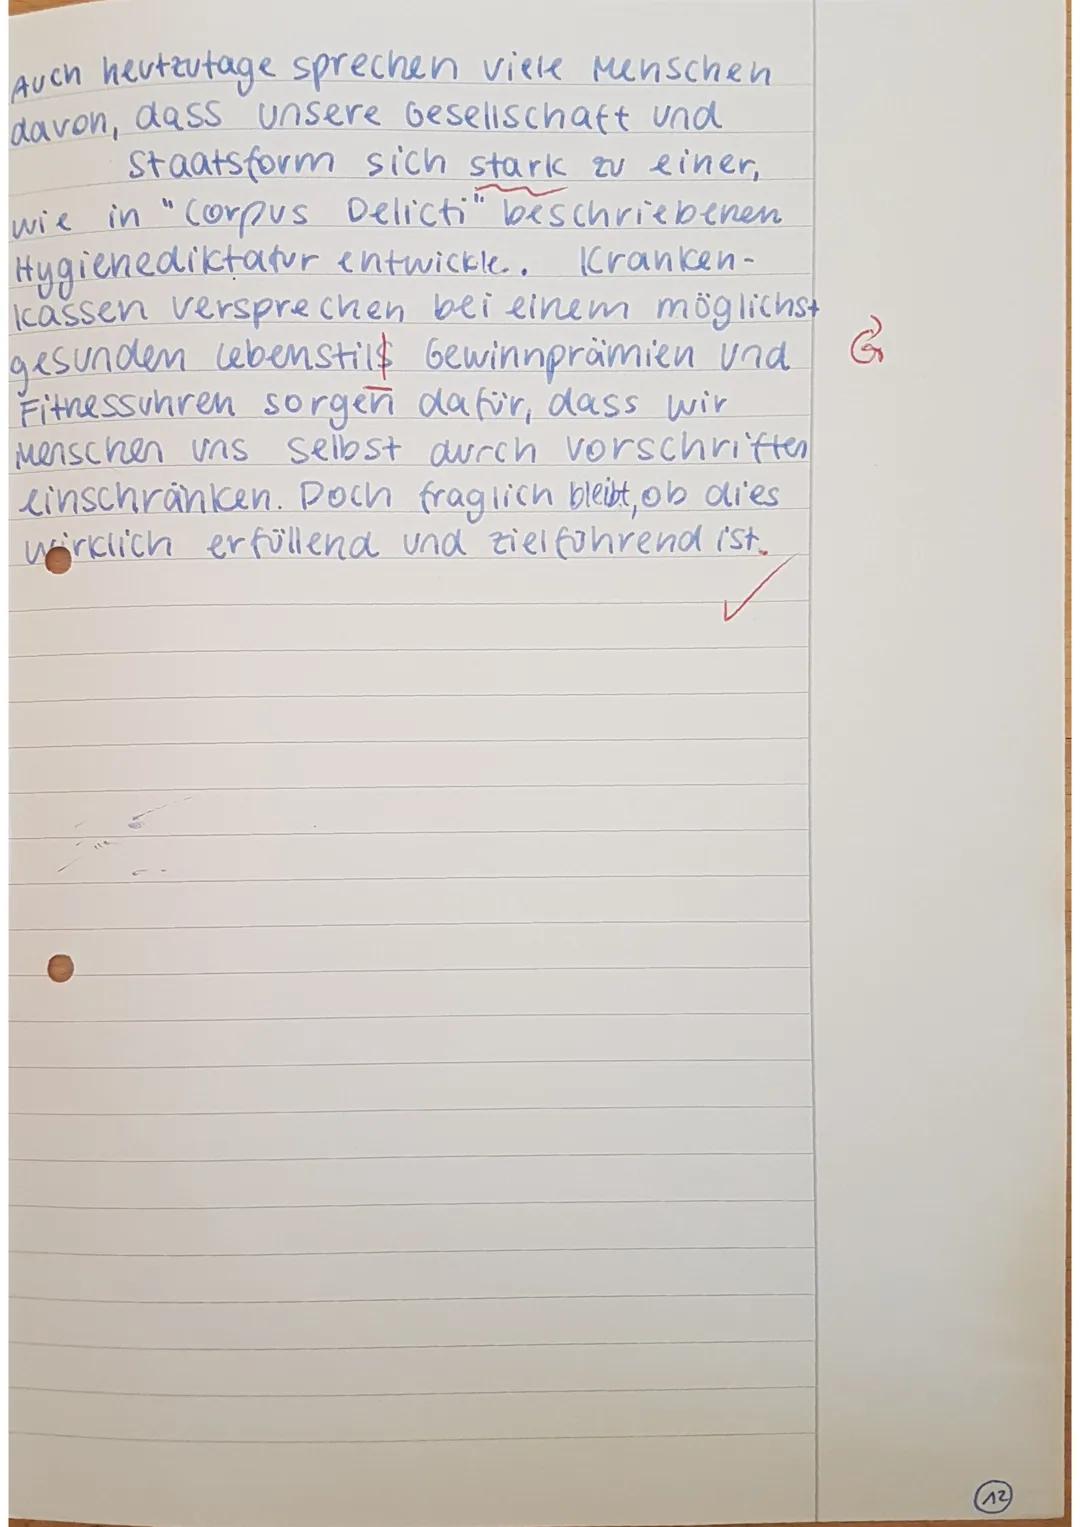 Auch heutzutage sprechen viele Menschen
davon, dass unsere Gesellschaft und
Staatsform sich stark zu einer,
wie in "Corpus Delicti" beschriebenen
Hygienediktatur entwickle. Kranken-
kassen versprechen bei einem möglichst
gesunden Lebenstils Gewinnprämien und
Fitnessuhren sorgen dafür, dass wir
Menschen uns selbst durch Vorschriften
einschränken. Doch fraglich bleibt, ob dies
wirklich erfüllend und zielführend ist.
G
12